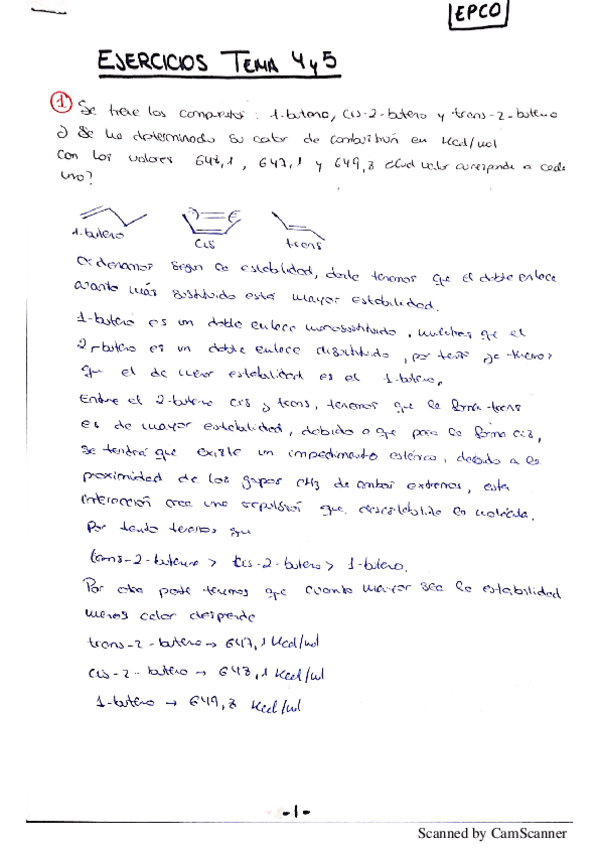 EPCO
EJERCICIOS TEMA 4 y 5
1 Se tiene los compuestos: 1-buteno, cis-2-buteno y trans-2-buteno
a) Se ha determinado su calor de combustión en Kcal/mol
Con los valores 648,1, 647,1 y 649,8 ¿Cuál valor corresponde a cada
uno?
1-buteno cis trans
Ordenamos según la estabilidad, donde tenemos que el doble enlace
cuanto más sustituido esté mayor estabilidad.
1-buteno es un doble enlace monosustituido, mientras que el
2-buteno es un doble enlace disustituido, por tanto ya tenemos
que el de menor estabilidad es el 1-buteno.
Entre el 2-buteno cis y trans, tenemos que la forma trans
es de mayor estabilidad, debido a que para la forma cis,
se tendrá que existe un impedimento estérico, debido a la
proximidad de los grupos CH3 de ambos extremos, esta
interacción crea una repulsión que desestabiliza la molécula.
Por tanto tenemos que
trans-2-buteno > cis-2-buteno > 1-buteno.
Por otra parte tenemos que cuanto mayor sea la estabilidad
menos calor desprende
trans-2-buteno → 647,1 Kcal/mol
cis-2-buteno → 648,1 Kcal/mol
1-buteno → 649,8 Kcal/mol
-1-
Scanned by CamScanner